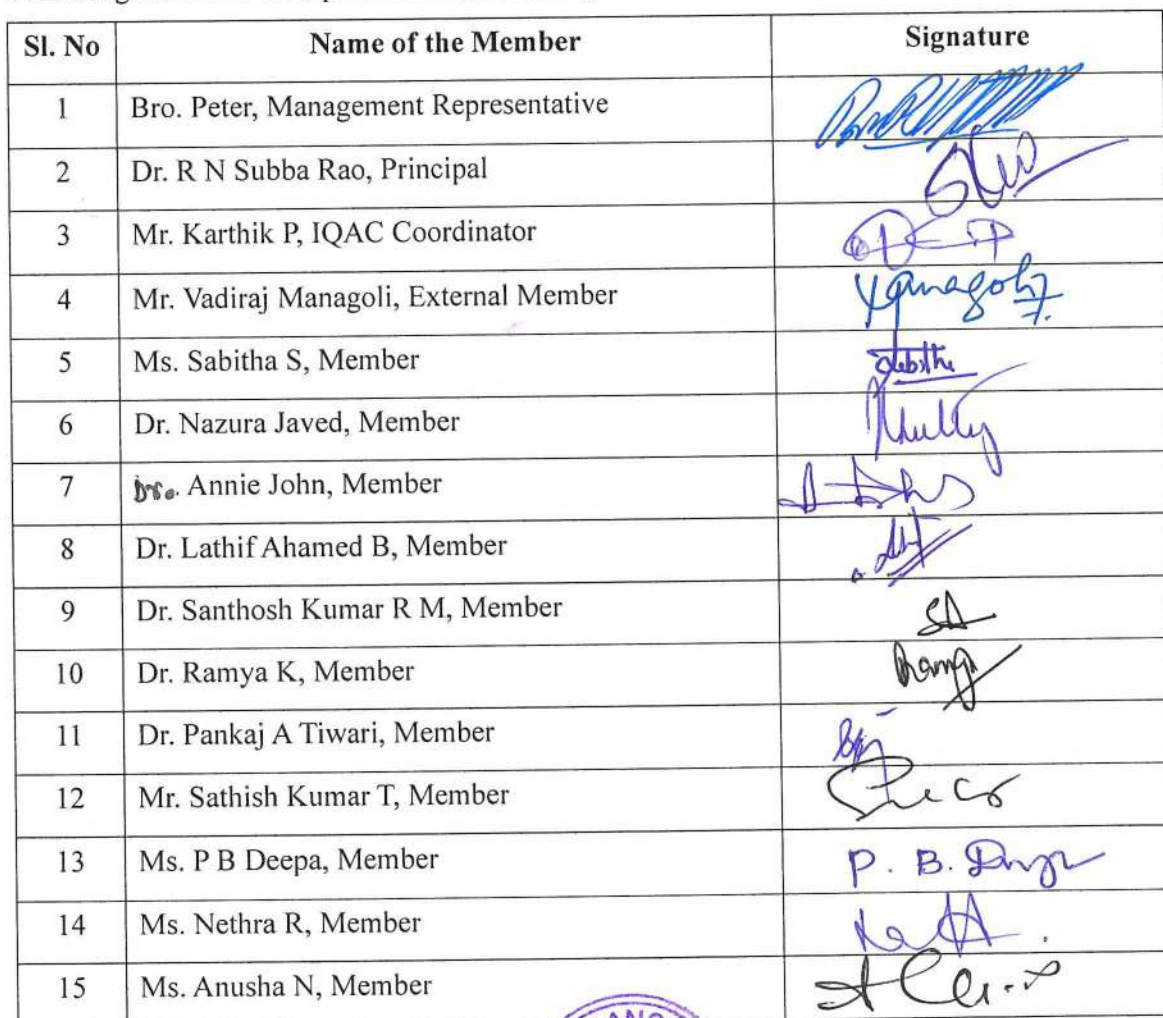 Sl. No Name of the Member Signature
1 Bro. Peter, Management Representative
2 Dr. R N Subba Rao, Principal
3 Mr. Karthik P, IQAC Coordinator
4 Mr. Vadiraj Managoli, External Member
5 Ms. Sabitha S, Member Sabitha
6 Dr. Nazura Javed, Member
7 Dr. Annie John, Member
8 Dr. Lathif Ahamed B, Member
9 Dr. Santhosh Kumar R M, Member
10 Dr. Ramya K, Member Ramya
11 Dr. Pankaj A Tiwari, Member
12 Mr. Sathish Kumar T, Member
13 Ms. P B Deepa, Member P. B.
14 Ms. Nethra R, Member
15 Ms. Anusha N, Member